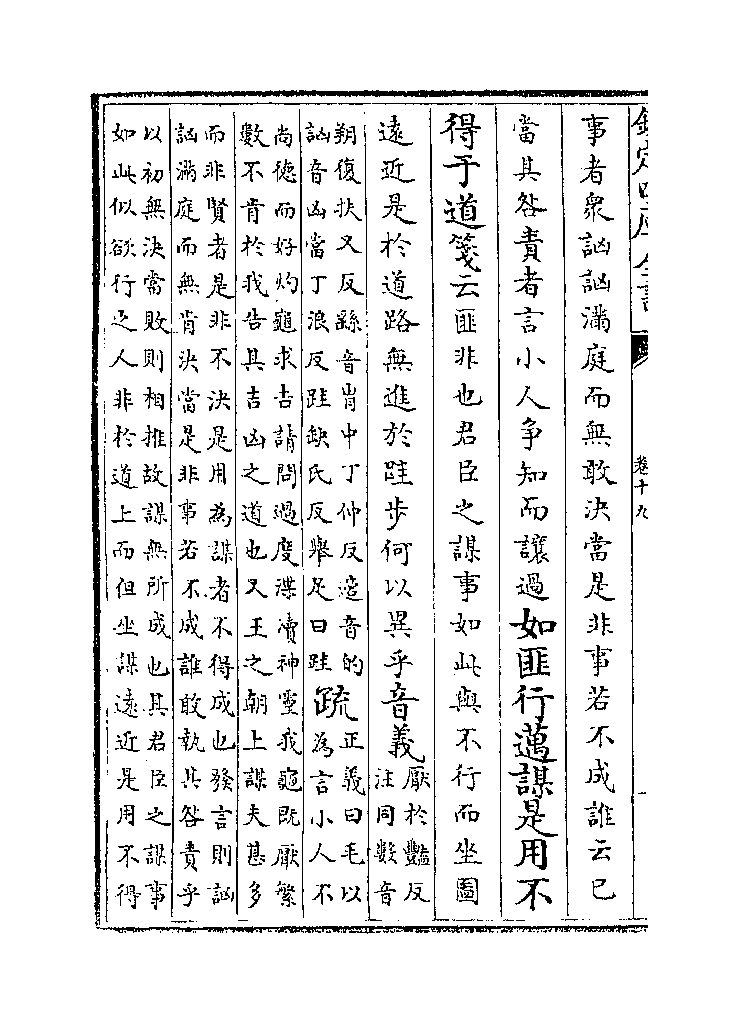 欽定四庫全書
卷十九
事者衆訩訩滿庭而無敢決當是非事若不成誰云已
當其咎責者言小人争知而讓過如匪行邁謀是用不
得于道箋云匪非也君臣之謀事如此與不行而坐圖
遠近是於道路無進於跬步何以異乎音義厭於豔反
注同數音
朔復扶又反繇音胄中丁仲反適音的
訩音凶當丁浪反跬缺氏反舉足曰跬疏正義曰毛以
為言小人不
尚德而好灼龜求吉請問過度渫瀆神靈我龜既厭繁
數不肯於我告其吉凶之道也又王之朝上謀夫甚多
而非賢者是非不決是用為謀者不得成也發言則訩
訩滿庭而無肯決當是非事若不成誰敢執其咎責乎
以初無決當敗則相推故謀無所成也其君臣之謀事
如此似欲行之人非於道上而但坐謀遠近是用不得